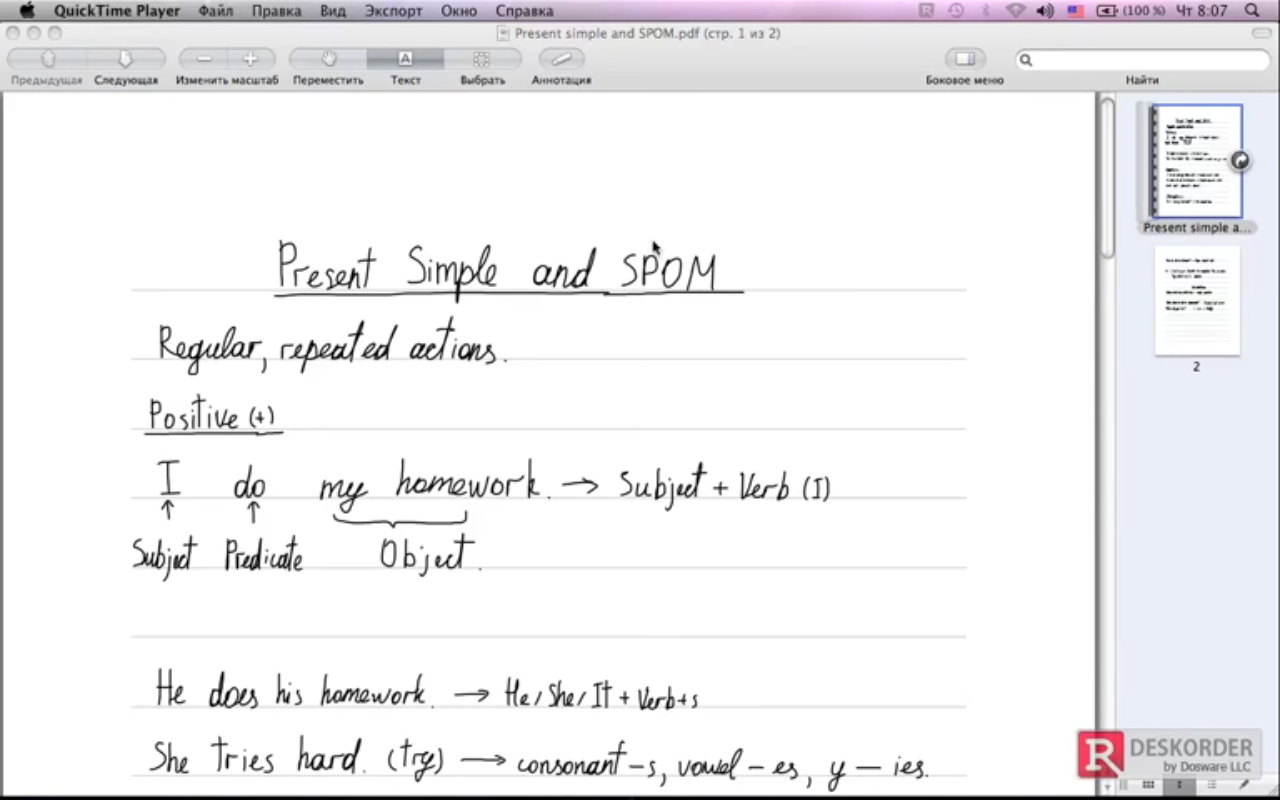 QuickTime Player Файл Правка Вид Экспорт Окно Справка (100 %) Чт 8:07
Present simple and SPOM.pdf (стр. 1 из 2)
Предыдущая Следующая Изменить масштаб Переместить Текст Выбрать Аннотация Боковое меню Найти
Present Simple and SPOM
Regular, repeated actions.
Positive (+)
I do my homework. → Subject + Verb (I)
Subject Predicate Object.
He does his homework. → He/She/It + Verb+s
She tries hard. (try) → consonant-s, vowel-es, y-ies.
Present simple a...
2
DESKORDER
by Dosware LLC